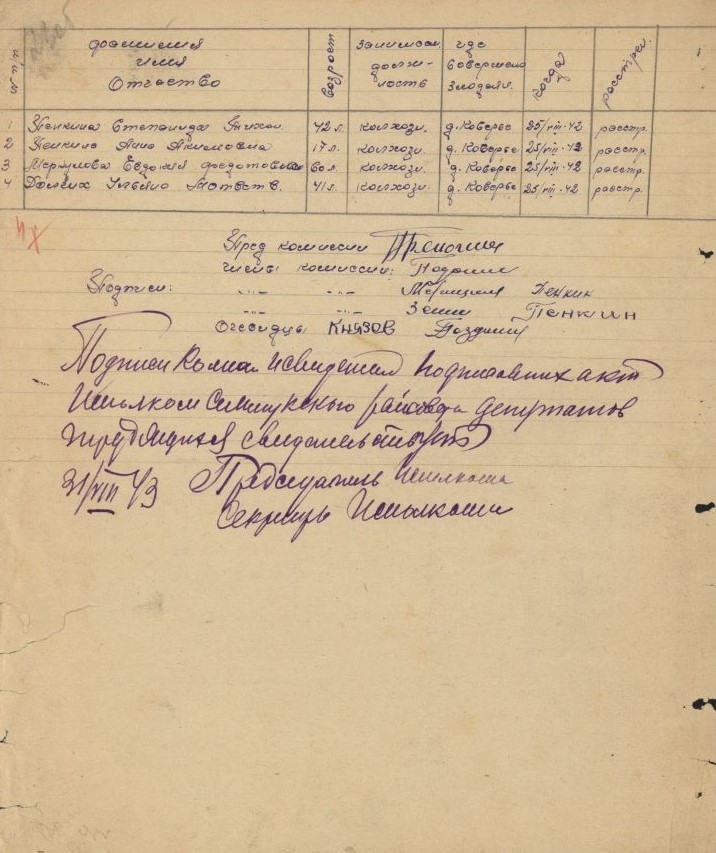 № п.п. фамилия имя Отчество возраст занимаем. должность где совершено злодеян. когда расстрел.
1 Пенкина Степанида Тихон. 42 л. колхозн. д. Коверье 25/VIII-42 расстр.
2 Пенкина Анна Акимовна 17 л. колхозн. д. Коверье 25/VIII-42 расстр.
3 Меркулова Евдокия Федотовна 60 л. колхозн. д. Коверье 25/VIII-42 расстр.
4 Долгих Ульяна Матв. 41 л. колхозн. д. Коверье 25/VIII-42 расстр.
Пред комиссии
члены комиссии:
Подписи: Пенкин
Пенкин
Очевидцы Князев
Подписи комис. и свидетел подписавших акт
Исполком Семилукского райсовета депутатов
трудящихся свидетельствует
31/VIII 43 Председатель Исполкома
Секретарь Исполкома